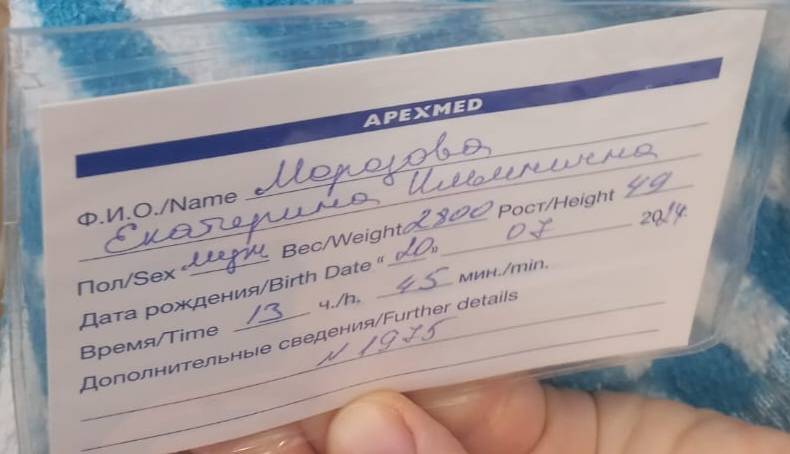 APEXMED
Ф.И.О./Name Морозова
Екатерина Ильинична
Пол/Sex муж Вес/Weight 2800 Рост/Height 49
Дата рождения/Birth Date “ 20 ” 07 2024.
Время/Time 13 ч./h. 45 мин./min.
Дополнительные сведения/Further details
N 1975